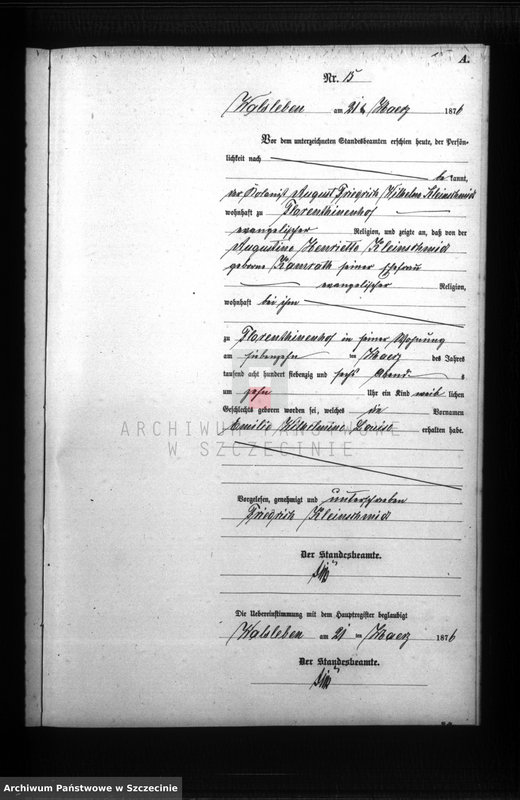 A.
Nr. 15
Walsleben am 21 ten Maerz 1876
Vor dem unterzeichneten Standesbeamten erschien heute, der Persön-
lichkeit nach be kannt,
der August Friedrich Wilhelm Kleinschmid
wohnhaft zu Florentinenhof
evangelischer Religion, und zeigte an, daß von der
Augustine Henriette Kleinschmid
geborne Kamrath seiner Ehefrau
evangelischer Religion,
wohnhaft bei ihm
zu Florentinenhof in seiner Wohnung
am siebenzehn ten Maerz des Jahres
tausend acht hundert siebenzig und sechs Abends
um zehn Uhr ein Kind weib lichen
Geschlechts geboren worden sei, welches die Vornamen
Emilie Wilhelmine Louise erhalten habe.
ARCHIWUM PAŃSTWOWE
W SZCZECINIE
Vorgelesen, genehmigt und unterschrieben
Friedrich Kleinschmid
Der Standesbeamte.
Die Uebereinstimmung mit dem Hauptregister beglaubigt
Walsleben am 21 ten Maerz 1876
Der Standesbeamte.
Archiwum Państwowe w Szczecinie